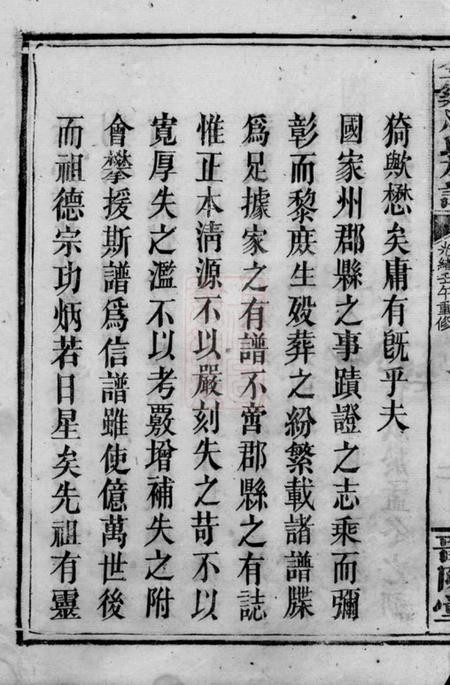 猗歟懋矣庸有旣乎夫
國家州郡縣之事蹟證之志乘而彌
彰而黎庶生殁葬之紛繁載諸譜牒
爲足據家之有譜不啻郡縣之有誌
惟正本淸源不以嚴刻失之苛不以
寬厚失之濫不以考覈增補失之附
會攀援斯譜爲信譜雖使億萬世後
而祖德宗功炳若日星矣先祖有靈
光緒壬午重修